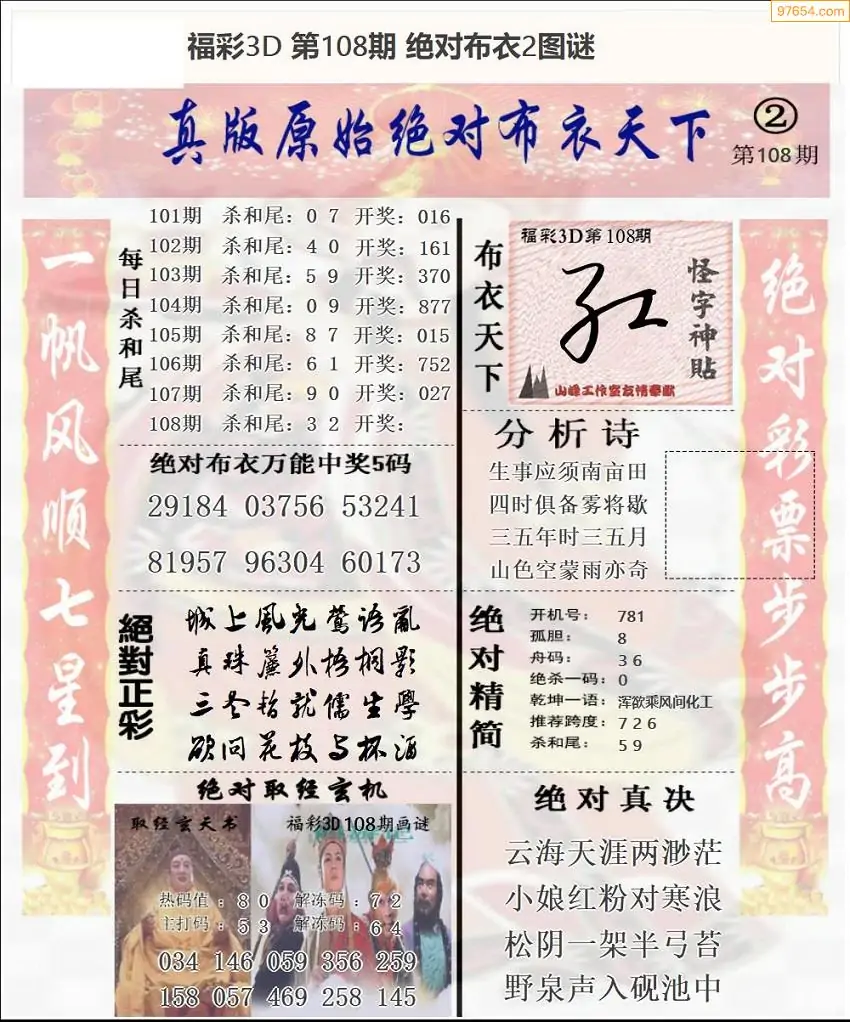 97654.com
福彩3D 第108期 绝对布衣2图谜
真版原始绝对布衣天下
②
第108期
一帆风顺七星到
每日杀和尾
101期 杀和尾：0 7 开奖：016
102期 杀和尾：4 0 开奖：161
103期 杀和尾：5 9 开奖：370
104期 杀和尾：0 9 开奖：877
105期 杀和尾：8 7 开奖：015
106期 杀和尾：6 1 开奖：752
107期 杀和尾：9 0 开奖：027
108期 杀和尾：3 2 开奖：
绝对布衣万能中奖5码
29184 03756 53241
81957 96304 60173
絕對正彩
城上風光鶯语亂
真珠簾外梧桐影
三冬皆就儒生學
欲问花枝与杯酒
绝对取经玄机
取经玄天书
福彩3D108期画谜
热码值：8 0 解冻码：7 2
主打码：5 3 解冻码：6 4
034 146 059 356 259
158 057 469 258 145
布衣天下
福彩3D第108期
红
怪字神貼
山峰工作室友情奉献
分析诗
生事应须南亩田
四时俱备雾将歇
三五年时三五月
山色空蒙雨亦奇
绝对精简
开机号： 781
孤胆： 8
舟码： 3 6
绝杀一码：0
乾坤一语：浑欲乘风问化工
推荐跨度：7 2 6
杀和尾： 5 9
绝对真决
云海天涯两渺茫
小娘红粉对寒浪
松阴一架半弓苔
野泉声入砚池中
绝对彩票步步高